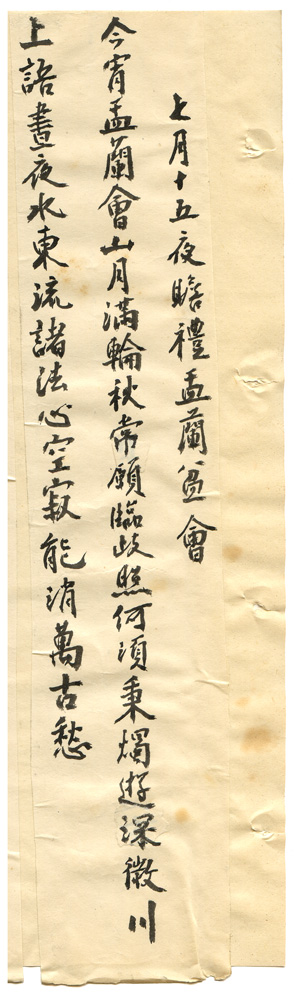 七月十五夜瞻禮盂蘭盆會
今宵盂蘭會山月滿輪秋常願臨歧照何須秉燭遊深徹川
上語晝夜水東流諸法心空寂能消萬古愁